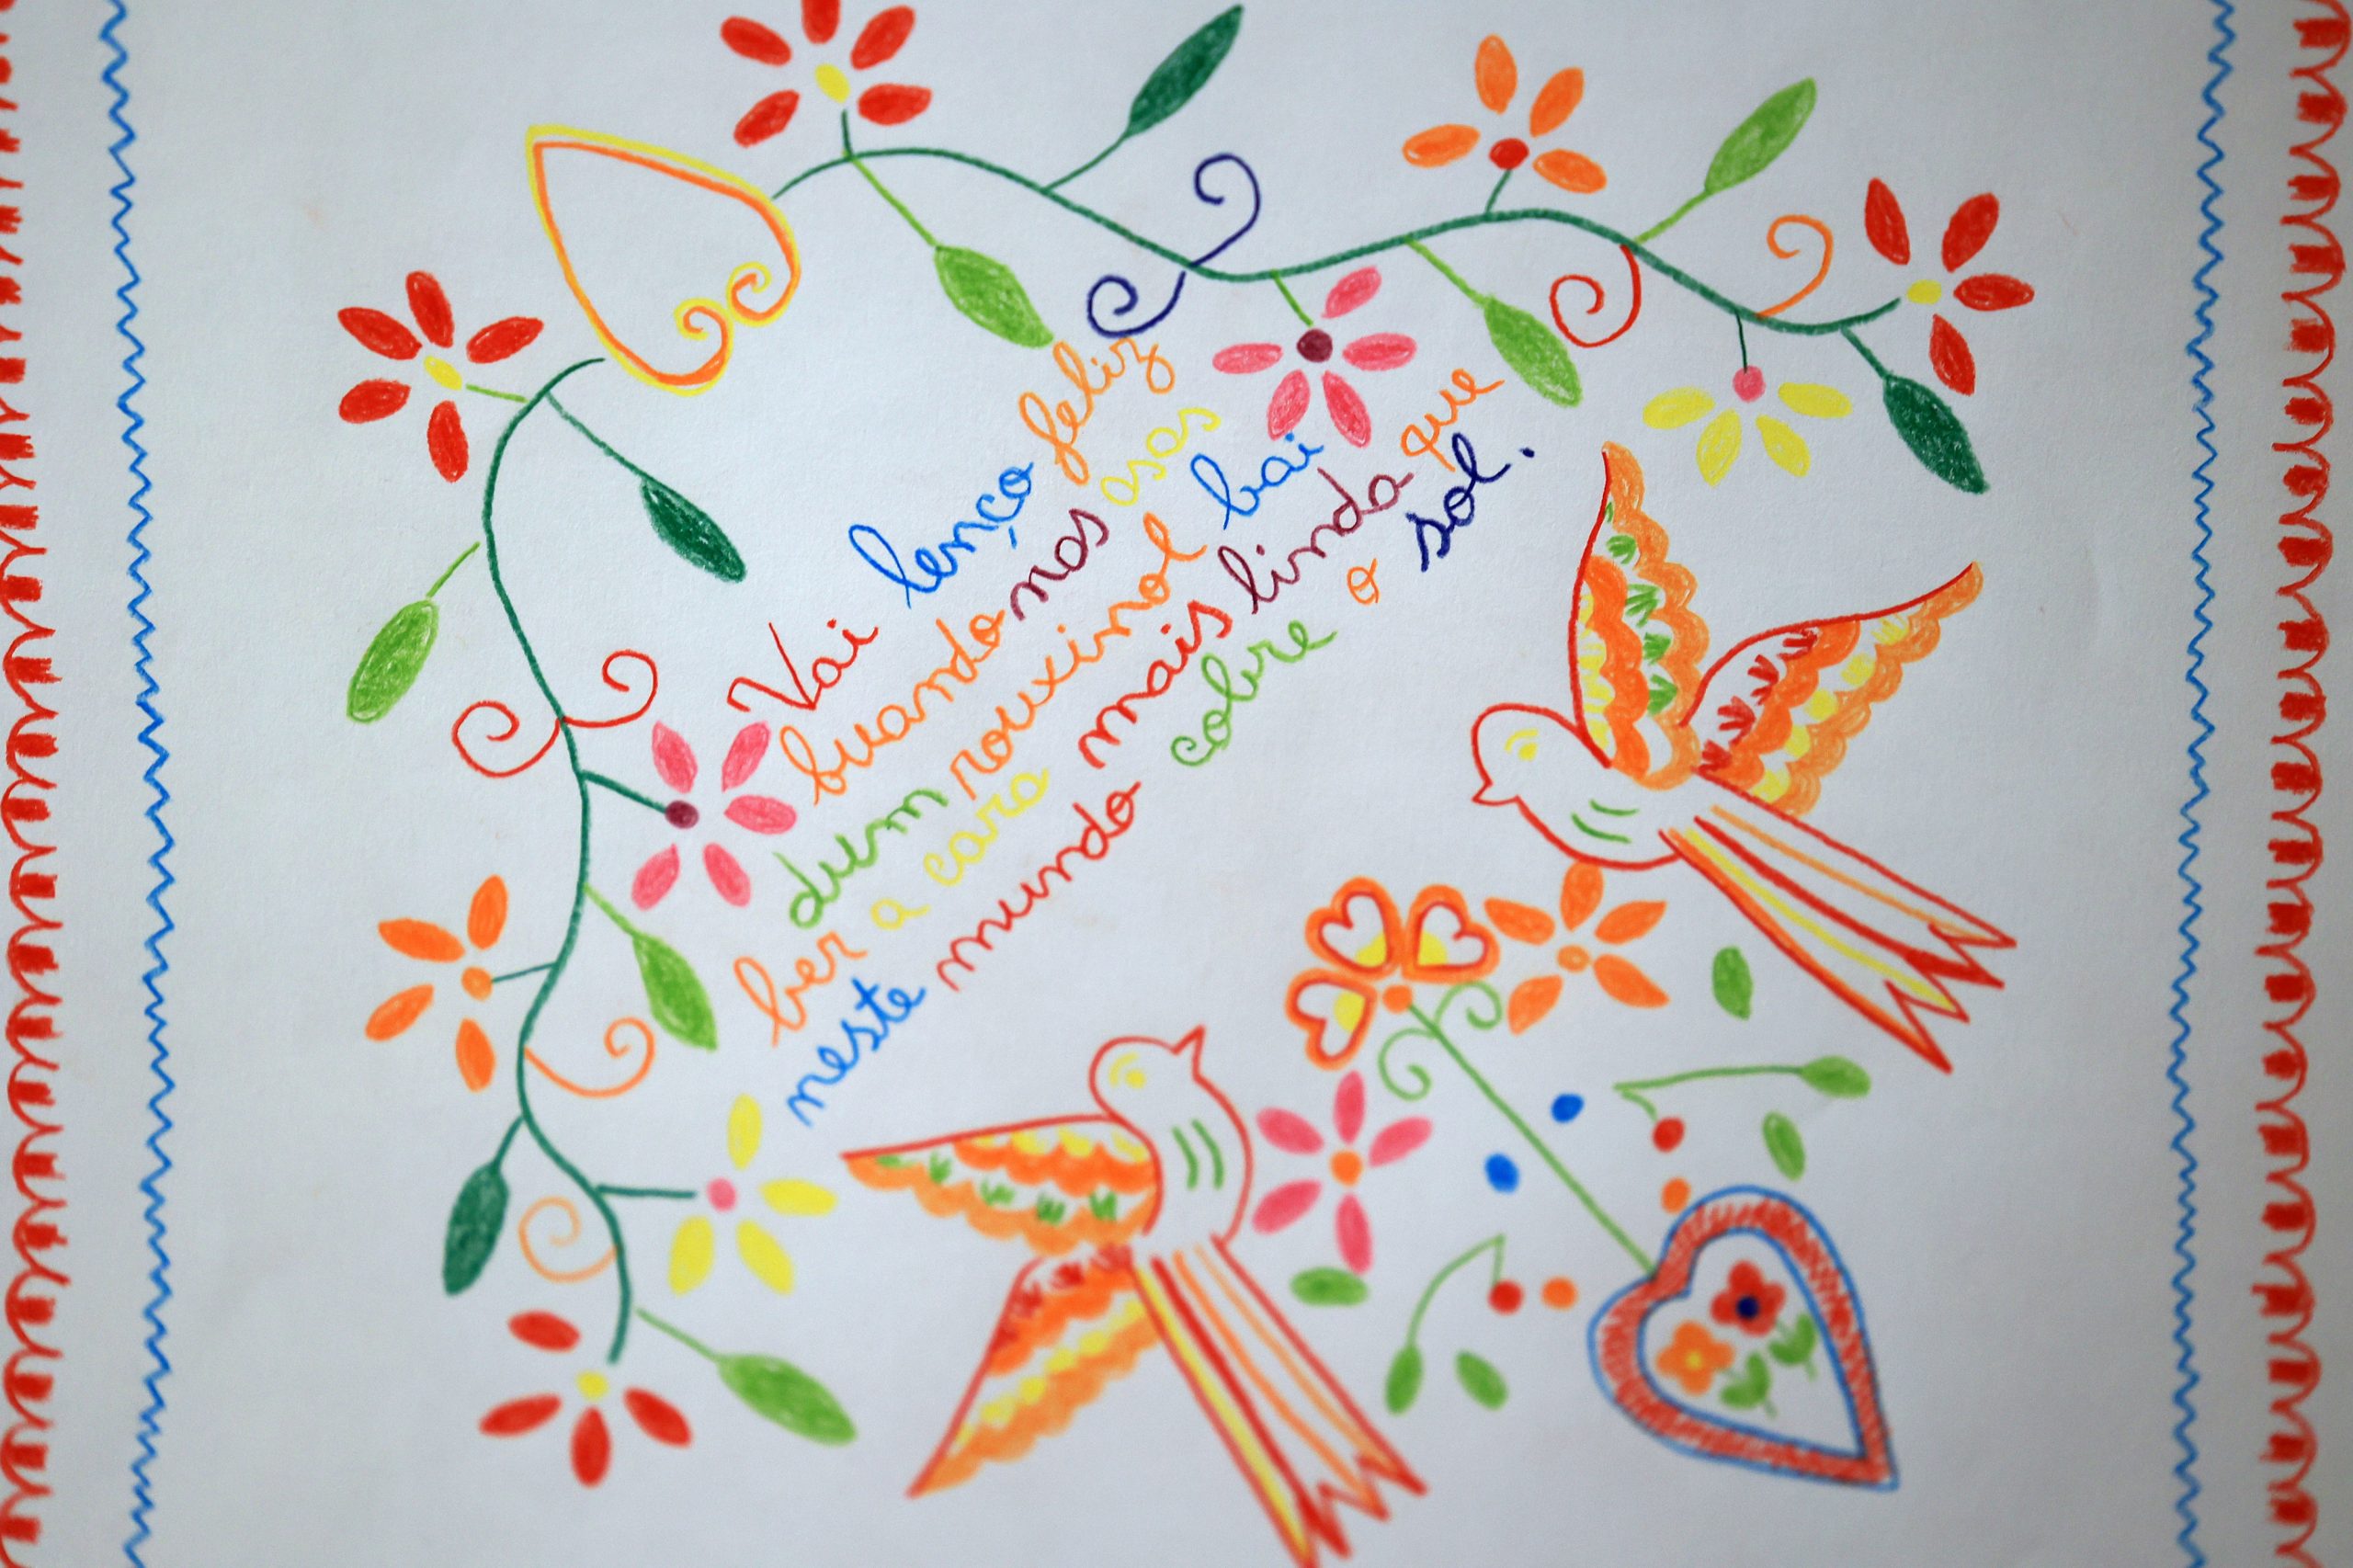 Vai lenço feliz
buando nas asas
dum rouxinol bai
ber a cara mais linda que
neste mundo cobre o sol.